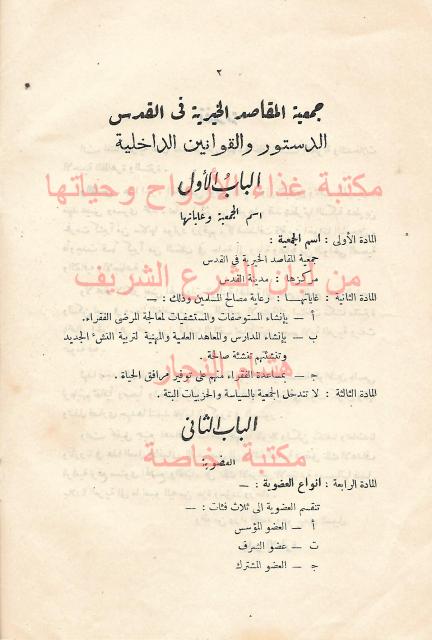 ٢
جمعية المقاصد الخيرية في القدس
الدستور والقوانين الداخلية
الباب الأول
مكتبة غذاء الأرواح وحياتها
اسم الجمعية وغاياتها
المادة الأولى : اسم الجمعية :
جمعية المقاصد الخيرية في القدس
مركزها : مدينة القدس
من لبان الشرع الشريف
المادة الثانية : غاياتها : رعاية مصالح المسلمين وذلك : —
أ — بإنشاء المستوصفات والمستشفيات لمعالجة المرضى الفقراء.
ب — بإنشاء المدارس والمعاهد العلمية والمهنية لتربية النشء الجديد
وتنشئتهم تنشئة صالحة.
هشام النجار
ج — بمساعدة الفقراء منهم على توفير مرافق الحياة .
المادة الثالثة : لا تتدخل الجمعية بالسياسة والحزبيات البتة .
الباب الثاني
مكتبة خاصة
العضوية
المادة الرابعة : انواع العضوية : —
تنقسم العضوية الى ثلاث فئات : —
أ — العضو المؤسس
ت — عضو الشرف
ج — العضو المشترك